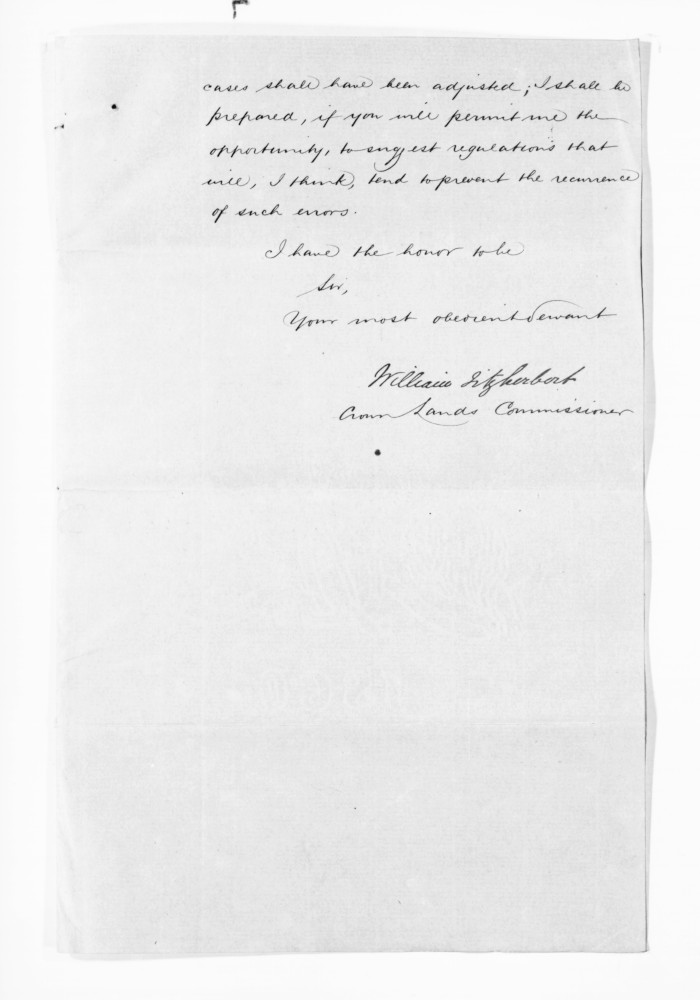 cases shall have been adjusted; I shall be
prepared, if you will permit me the
opportunity, to suggest regulations that
will, I think, tend to prevent the recurrence
of such errors.
I have the honor to be
Sir,
Your most obedient Servant
William Fitzherbert
Crown Lands Commissioner